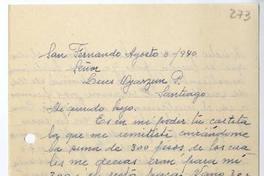 273
San Fernando Agosto 3/940
Señor
Luis Oyarzun P.
Santiago
Mi querido hijo.
Es en mi poder tu cartita
la que me remitiste enviándome
la suma de 300 pesos de los cua
les me decias eran para mí
200